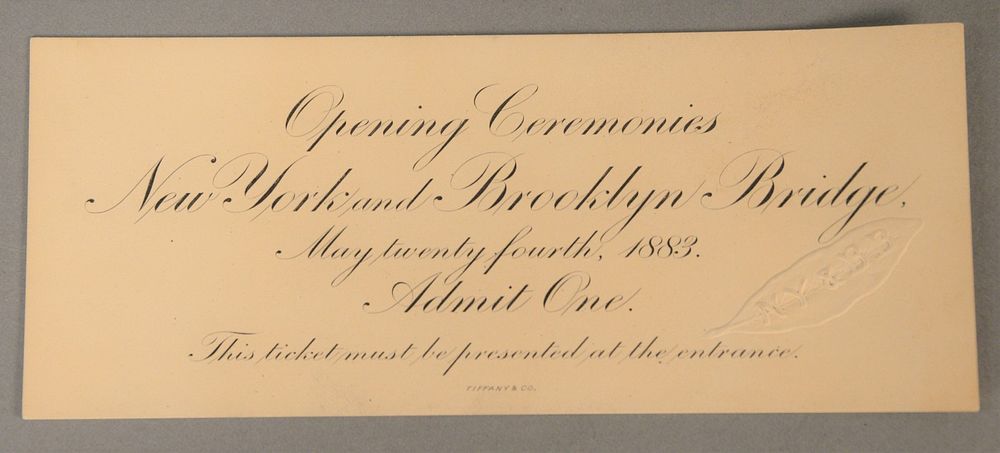 Opening Ceremonies
New York and Brooklyn Bridge,
May twenty fourth, 1883.
Admit One.
N.Y. & B.B
This ticket must be presented at the entrance.
TIFFANY & CO.